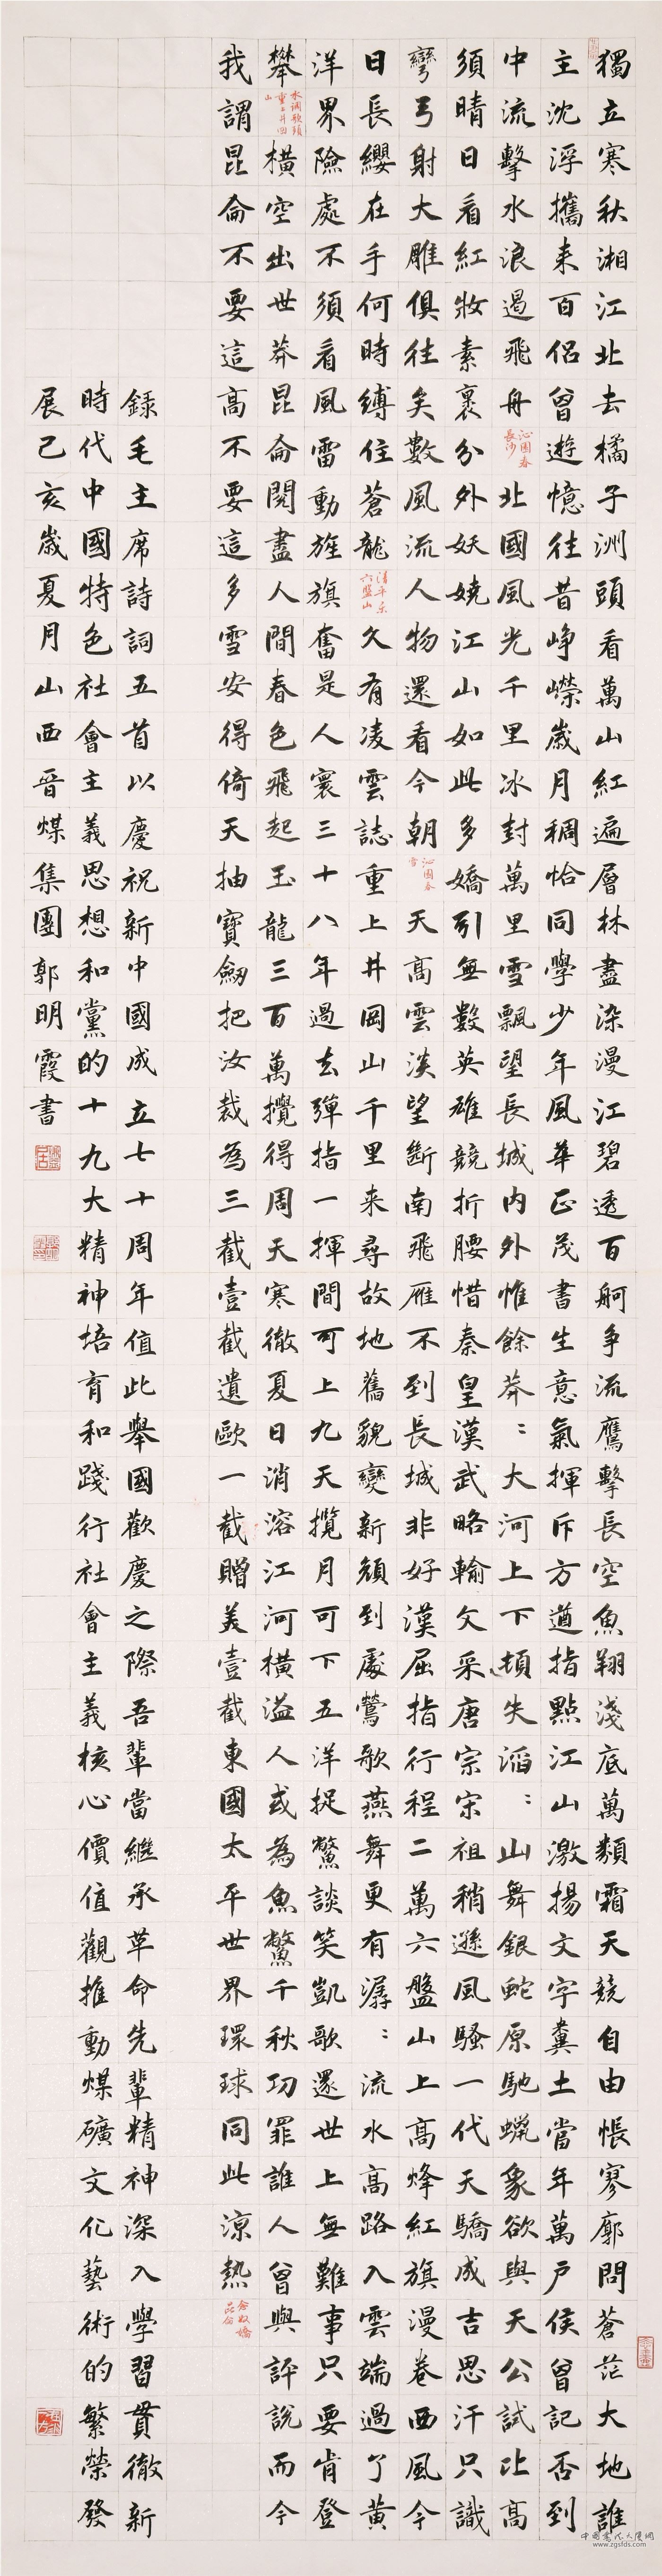 獨立寒秋湘江北去橘子洲頭看萬山紅遍層林盡染漫江碧透百舸争流鷹擊長空魚翔淺底萬類霜天競自由悵寥廓問蒼茫大地誰
主沈浮攜来百侣曾遊憶往昔崢嶸歲月稠恰同學少年風華正茂書生意氣揮斥方遒指點江山激揚文字糞土當年萬户侯曾記否到
中流擊水浪遏飛舟沁園春長沙北國風光千里冰封萬里雪飄望長城内外惟餘莽〻大河上下頓失滔〻山舞銀蛇原馳蠟象欲與天公試比高
須晴日看紅妝素裹分外妖嬈江山如此多嬌引無數英雄競折腰惜秦皇漢武略輸文采唐宗宋祖稍遜風騷一代天驕成吉思汗只識
彎弓射大雕俱往矣數風流人物還看今朝沁園春雪天高雲淡望斷南飛雁不到長城非好漢屈指行程二萬六盤山上高烽紅旗漫卷西風今
日長纓在手何時縛住蒼龍清平乐六盤山久有凌雲誌重上井岡山千里来尋故地舊貌變新顔到處鶯歌燕舞更有潺〻流水高路入雲端過了黄
洋界險處不須看風雷動旌旗奮是人寰三十八年過去彈指一揮間可上九天攬月可下五洋捉鱉談笑凱歌還世上無難事只要肯登
攀水調歌頭重上井岡山橫空出世莽昆侖閲盡人間春色飛起玉龍三百萬攪得周天寒徹夏日消溶江河橫溢人或為魚鱉千秋功罪誰人曾與評說而今
我謂昆侖不要這高不要這多雪安得倚天抽寶劒把汝裁為三截壹截遺歐一截贈美壹截東國太平世界環球同此凉熱念奴嬌昆侖
錄毛主席詩詞五首以慶祝新中國成立七十周年值此舉國歡慶之際吾輩當繼承革命先輩精神深入學習貫徹新
時代中國特色社會主義思想和黨的十九大精神培育和踐行社會主義核心價值觀推動煤礦文化藝術的繁榮發
展己亥歲夏月山西晉煤集團郭明霞書
中国書法大厦網
www.zgsfds.com